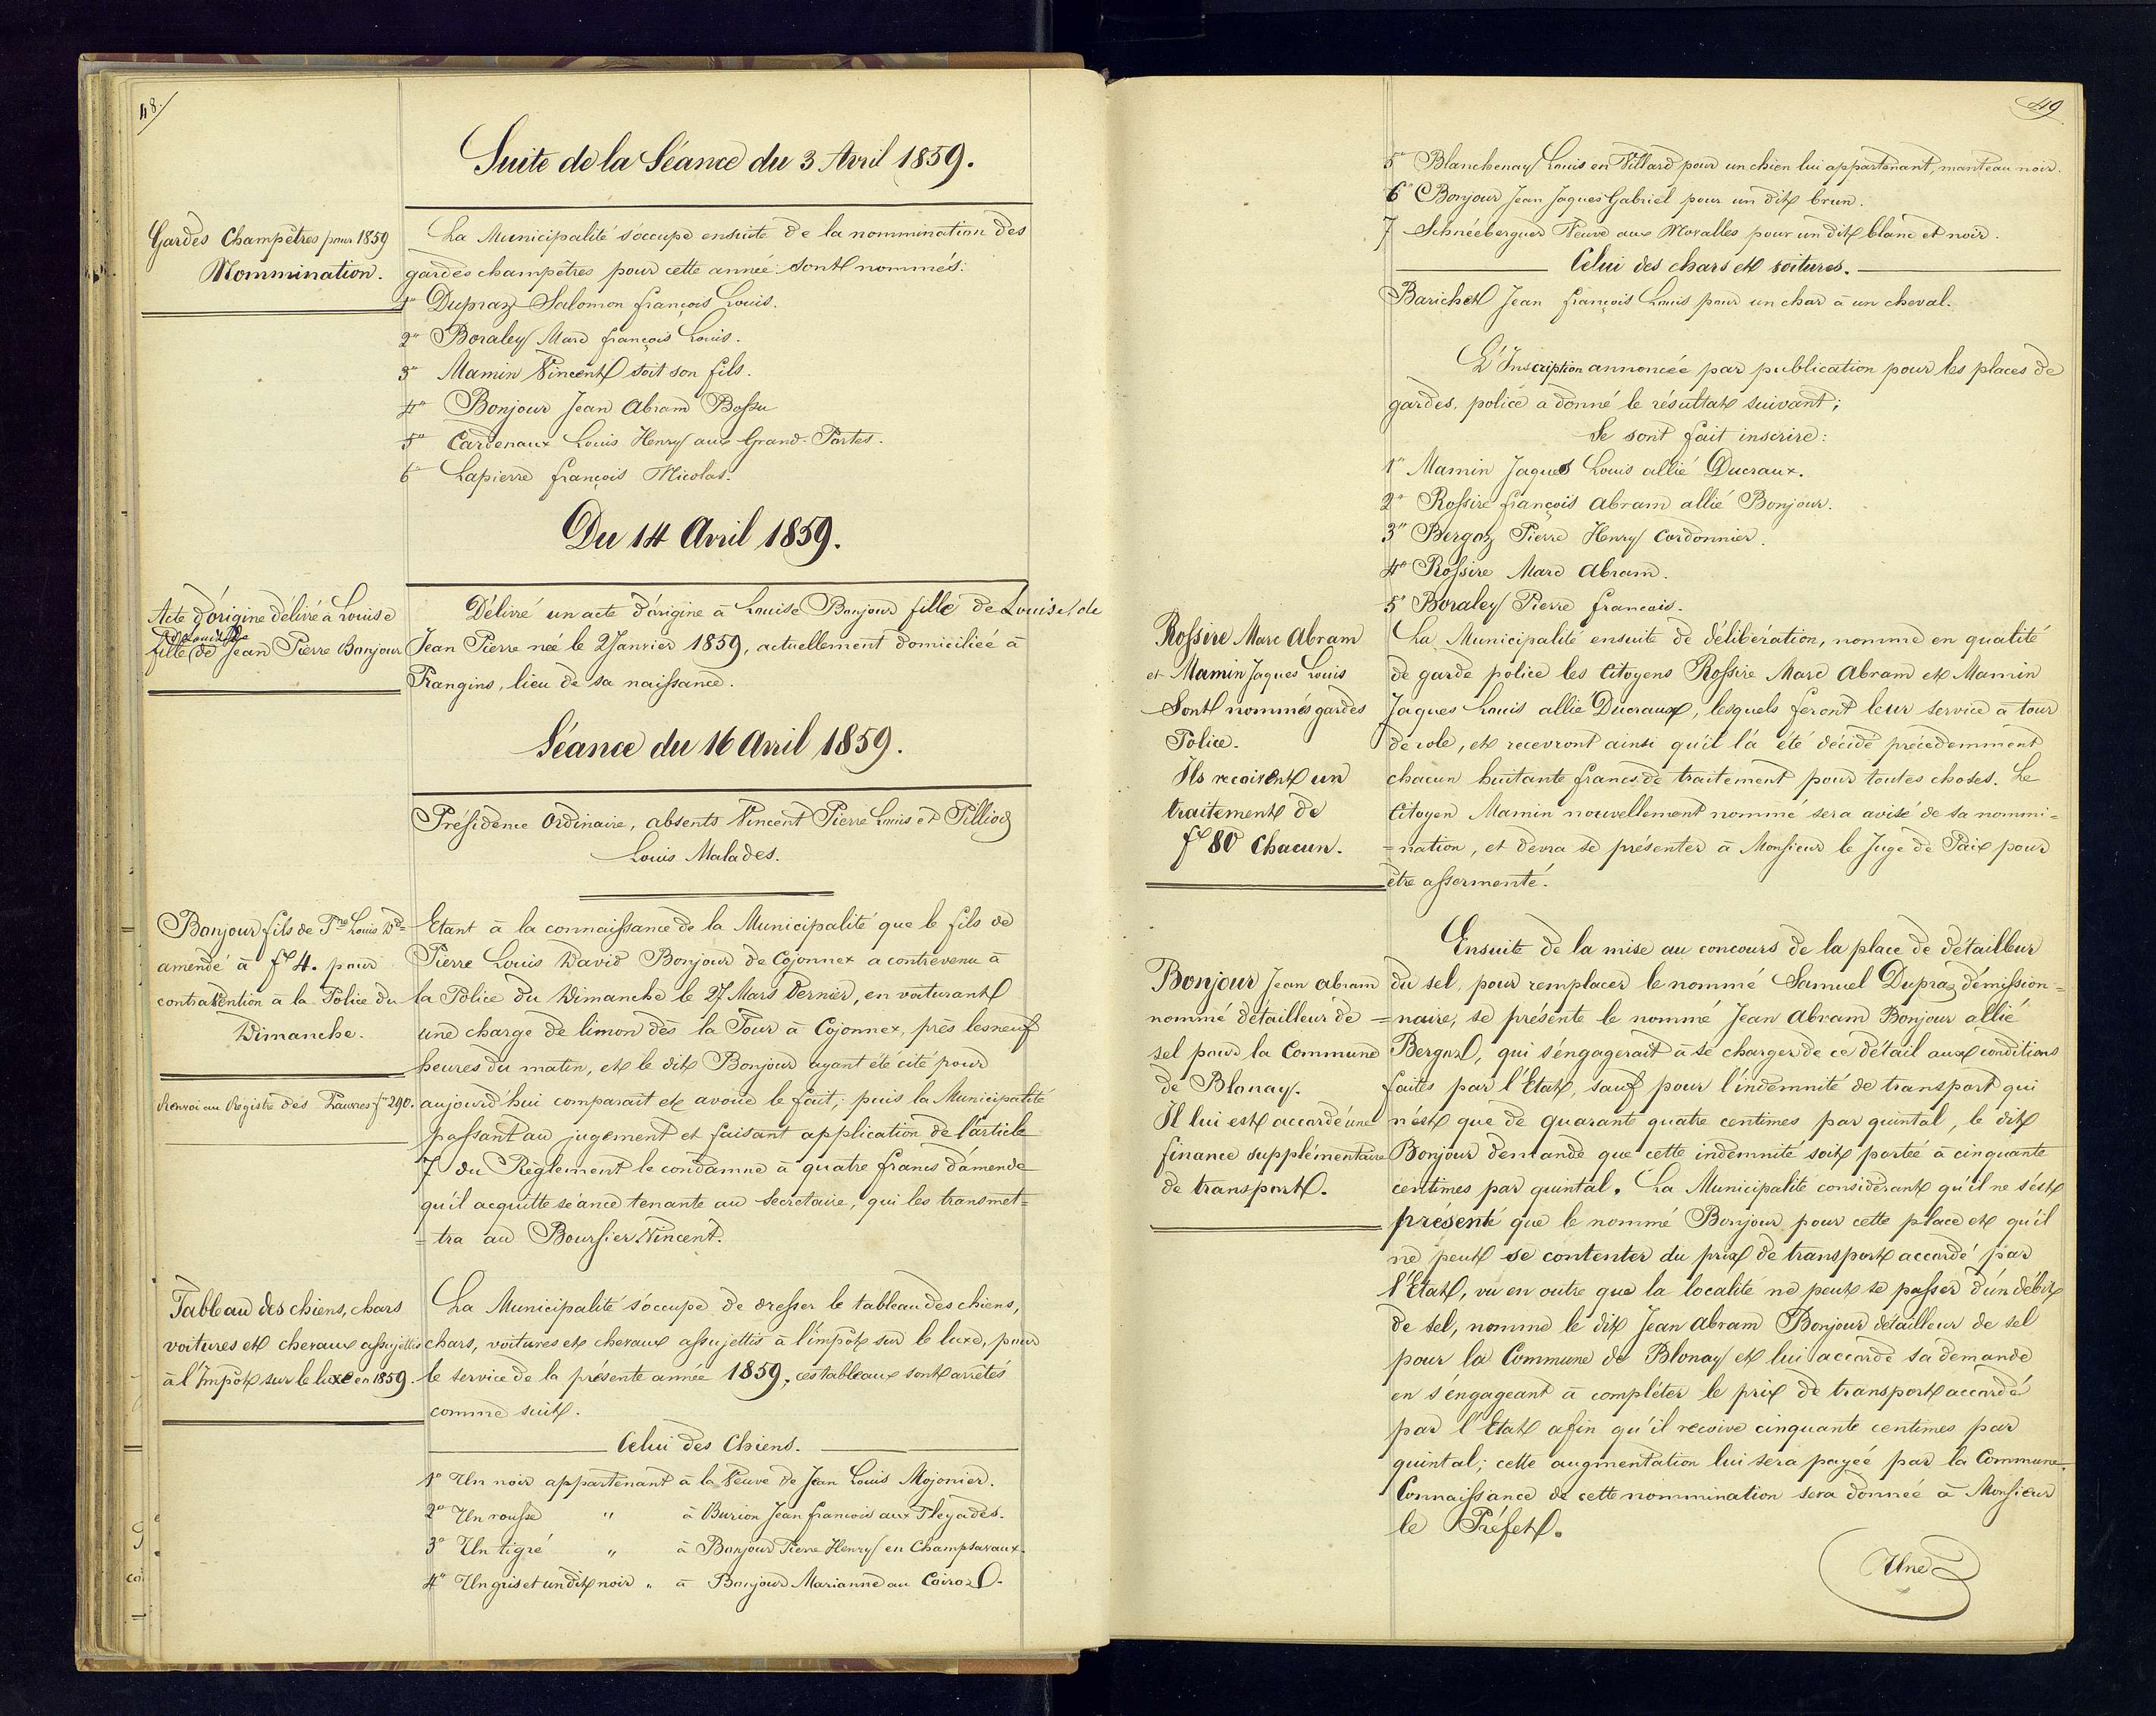 48.
Suite de la Séance du 3 Avril 1859.
Gardes Champêtres pour 1859
Nommination.
La Municipalité s'occupe ensuite de la nommination des
gardes champêtres pour cette année: sont nommés:
1° Dupraz Salomon françois Louis.
2° Boraley Marc françois Louis.
3° Mamin Vincent soit son fils.
4° Bonjour Jean Abram Bossu
5° Cardenaux Louis Henry aux Grand-Partes.
6° Lapierre françois Nicolas.
Du 14 Avril 1859.
Acte d'origine délivré à Louise
fille de Jean Pierre Bonjour
Délivré un acte d'origine à Louise Bonjour fille de Louise/de
Jean Pierre née le 2 Janvier 1859, actuellement domiciliée à
Prangins, lieu de sa naissance.
Séance du 16 Avril 1859.
Présidence Ordinaire, absents Vincent Pierre Louis et Pilliod
Louis Malades.
Bonjour fils de Pre Louis Dd
amendé à f 4. pour
contravention à la Police du
Dimanche.
Renvoi au Régistre des Pauvres f° 290.
Etant à la connaissance de la Municipalité que le fils de
Pierre Louis David Bonjour de Cojonnex a contrevenu à
la Police du Dimanche le 27 Mars dernier, en voiturant
une charge de limon dès la Tour à Cojonnex, près les neuf
heures du matin, et le dit Bonjour ayant été cité pour
aujourd'hui comparait et avoue le fait; puis la Municipalité
passant au jugement et faisant application de l'article
7 du Règlement le condamne à quatre francs d'amende
qu'il acquitte séance tenante au Secrétaire, qui les transmet=
=tra au Boursier Vincent.
Tableau des chiens, chars
voitures et chevaux assujettis
à l'Impôt sur le luxe en 1859.
La Municipalité s'occupe de dresser le tableau des chiens,
chars, voitures et chevaux assujettis à l'impôt sur le luxe, pour
le service de la présente année 1859; ces tableaux sont arrêtés
comme suit.
Celui des Chiens.
1° Un noir appartenant à la Veuve de Jean Louis Mojonier.
2° Un rousse " à Burion Jean francois aux Pleyades.
3° Un tigré " à Bonjour Pierre Henry en Champsavaux.
4° Un gris et un dit noir " à Bonjour Marianne au
49
5° Blanchenay Louis en Villard pour un chien lui appartenant, manteau noir.
6° Bonjour Jean Jaques Gabriel pour un dit brun.
7 Schnéeberguer Veuve aux Moralles pour un dit blanc et noir.
Celui des chars et voitures.
Barichet Jean françois Louis pour un char à un cheval.
L'Inscription annoncée par publication pour les places de
gardes, police a donné le résultat suivant;
Se sont fait inscrire:
1° Mamin Jaques Louis allié Ducraux.
2° Rossire françois Abram allié Bonjour.
3° Bergoz Pierre Henry Cordonnier.
4° Rossire Marc Abram.
5° Boraley Pierre francois.
Rossire Marc Abram
et Mamin Jaques Louis
Sont nommés gardes
Police.
Ils recoivent un
traitement de
f 80 Chacun.
La Municipalité ensuite de délibération, nomme en qualité
de garde police les Citoyens Rossire Marc Abram et Mamin
Jaques Louis allié Ducraux, lesquels feront leur service à tour
de role, et recevront ainsi qu'il l'a été décidé précédemment
chacun huitante francs de traitement pour toutes choses. Le
Citoyen Mamin nouvellement nommé sera avisé de sa nommi=
=nation, et devra se présenter à Monsieur le Juge de Paix pour
être assermenté.
Bonjour Jean Abram
nommé détailleur de
sel pour la Commune
de Blonay.
Il lui est accordé une
finance supplémentaire
de transport.
Ensuite de la mise au concours de la place de détailleur
du sel, pour remplacer le nommé Samuel Dupraz démission=
=naire, se présente le nommé Jean Abram Bonjour allié
Bergoz, qui s'engagerait à se charger de ce détail aux conditions
faites par l'Etat, sauf pour l'indemnité de transport qui
n'est que de quarante quatre centimes par quintal, le dit
Bonjour demande que cette indemnité soit portée à cinquante
centimes par quintal. La Municipalité considérant qu'il ne s'est
présenté que le nommé Bonjour pour cette place et qu'il
ne peut se contenter du prix de transport accordé par
l'Etat, vu en outre que la localité ne peut se passer d'un débit
de sel, nomme le dit Jean Abram Bonjour détailleur de sel
pour la Commune de Blonay et lui accorde sa demande
en s'engageant à compléter le prix de transport accordé
par l'Etat afin qu'il recoive cinquante centimes par
quintal; cette augmentation lui sera payée par la Commune.
Connaissance de cette nommination sera donnée à Monsieur
le Préfet.
Une